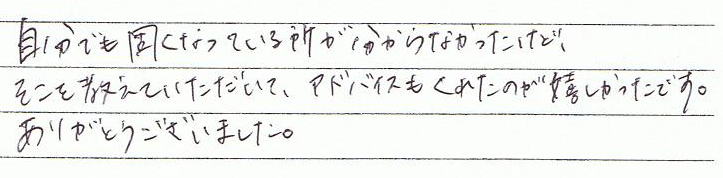 自分でも固くなっている所が分からなかったけど、
そこを教えていただいて、アドバイスもくれたのが嬉しかったです。
ありがとうございました。